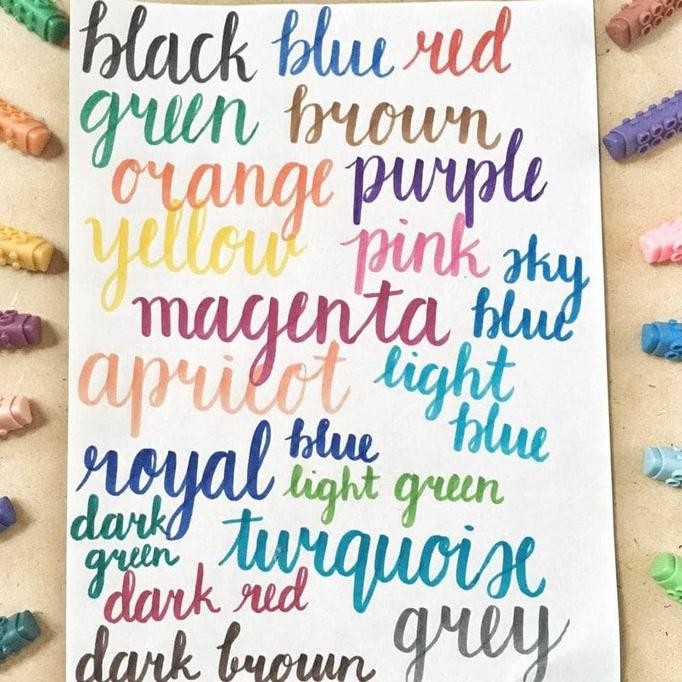 black blue red
green brown
orange purple
yellow pink sky
magenta blue
apricot light
blue
royal blue
light green
dark
green turquoise
dark red
grey
dark brown